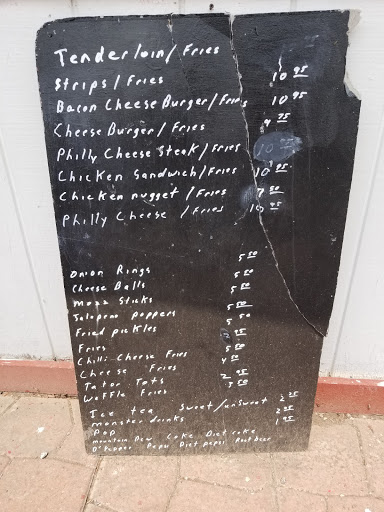 Tenderloin/Fries
Strips/Fries 10 95
Bacon Cheese Burger/Fries 10 95
Cheese Burger/Fries 9 75
Philly Cheese Steak/Fries 10
Chicken Sandwich/Fries 10 95
Chicken nugget/Fries 7 50
Philly Cheese /Fries 10 95
Onion Rings 5 50
Cheese Balls 5 50
Mozz Sticks 5 50
Jalapeno Poppers 5 50
Fried Pickles 5 50
Fries 95
Chilli Cheese Fries 5 50
Cheese Fries 4 50
Tator Tots 2 95
Waffle Fries 3 50
Ice tea Sweet/unSweet 2 25
monster drinks 2 95
Pop 1 95
mountain Dew Coke Diet coke
Dr Pepper Pepsi Diet pepsi Root beer